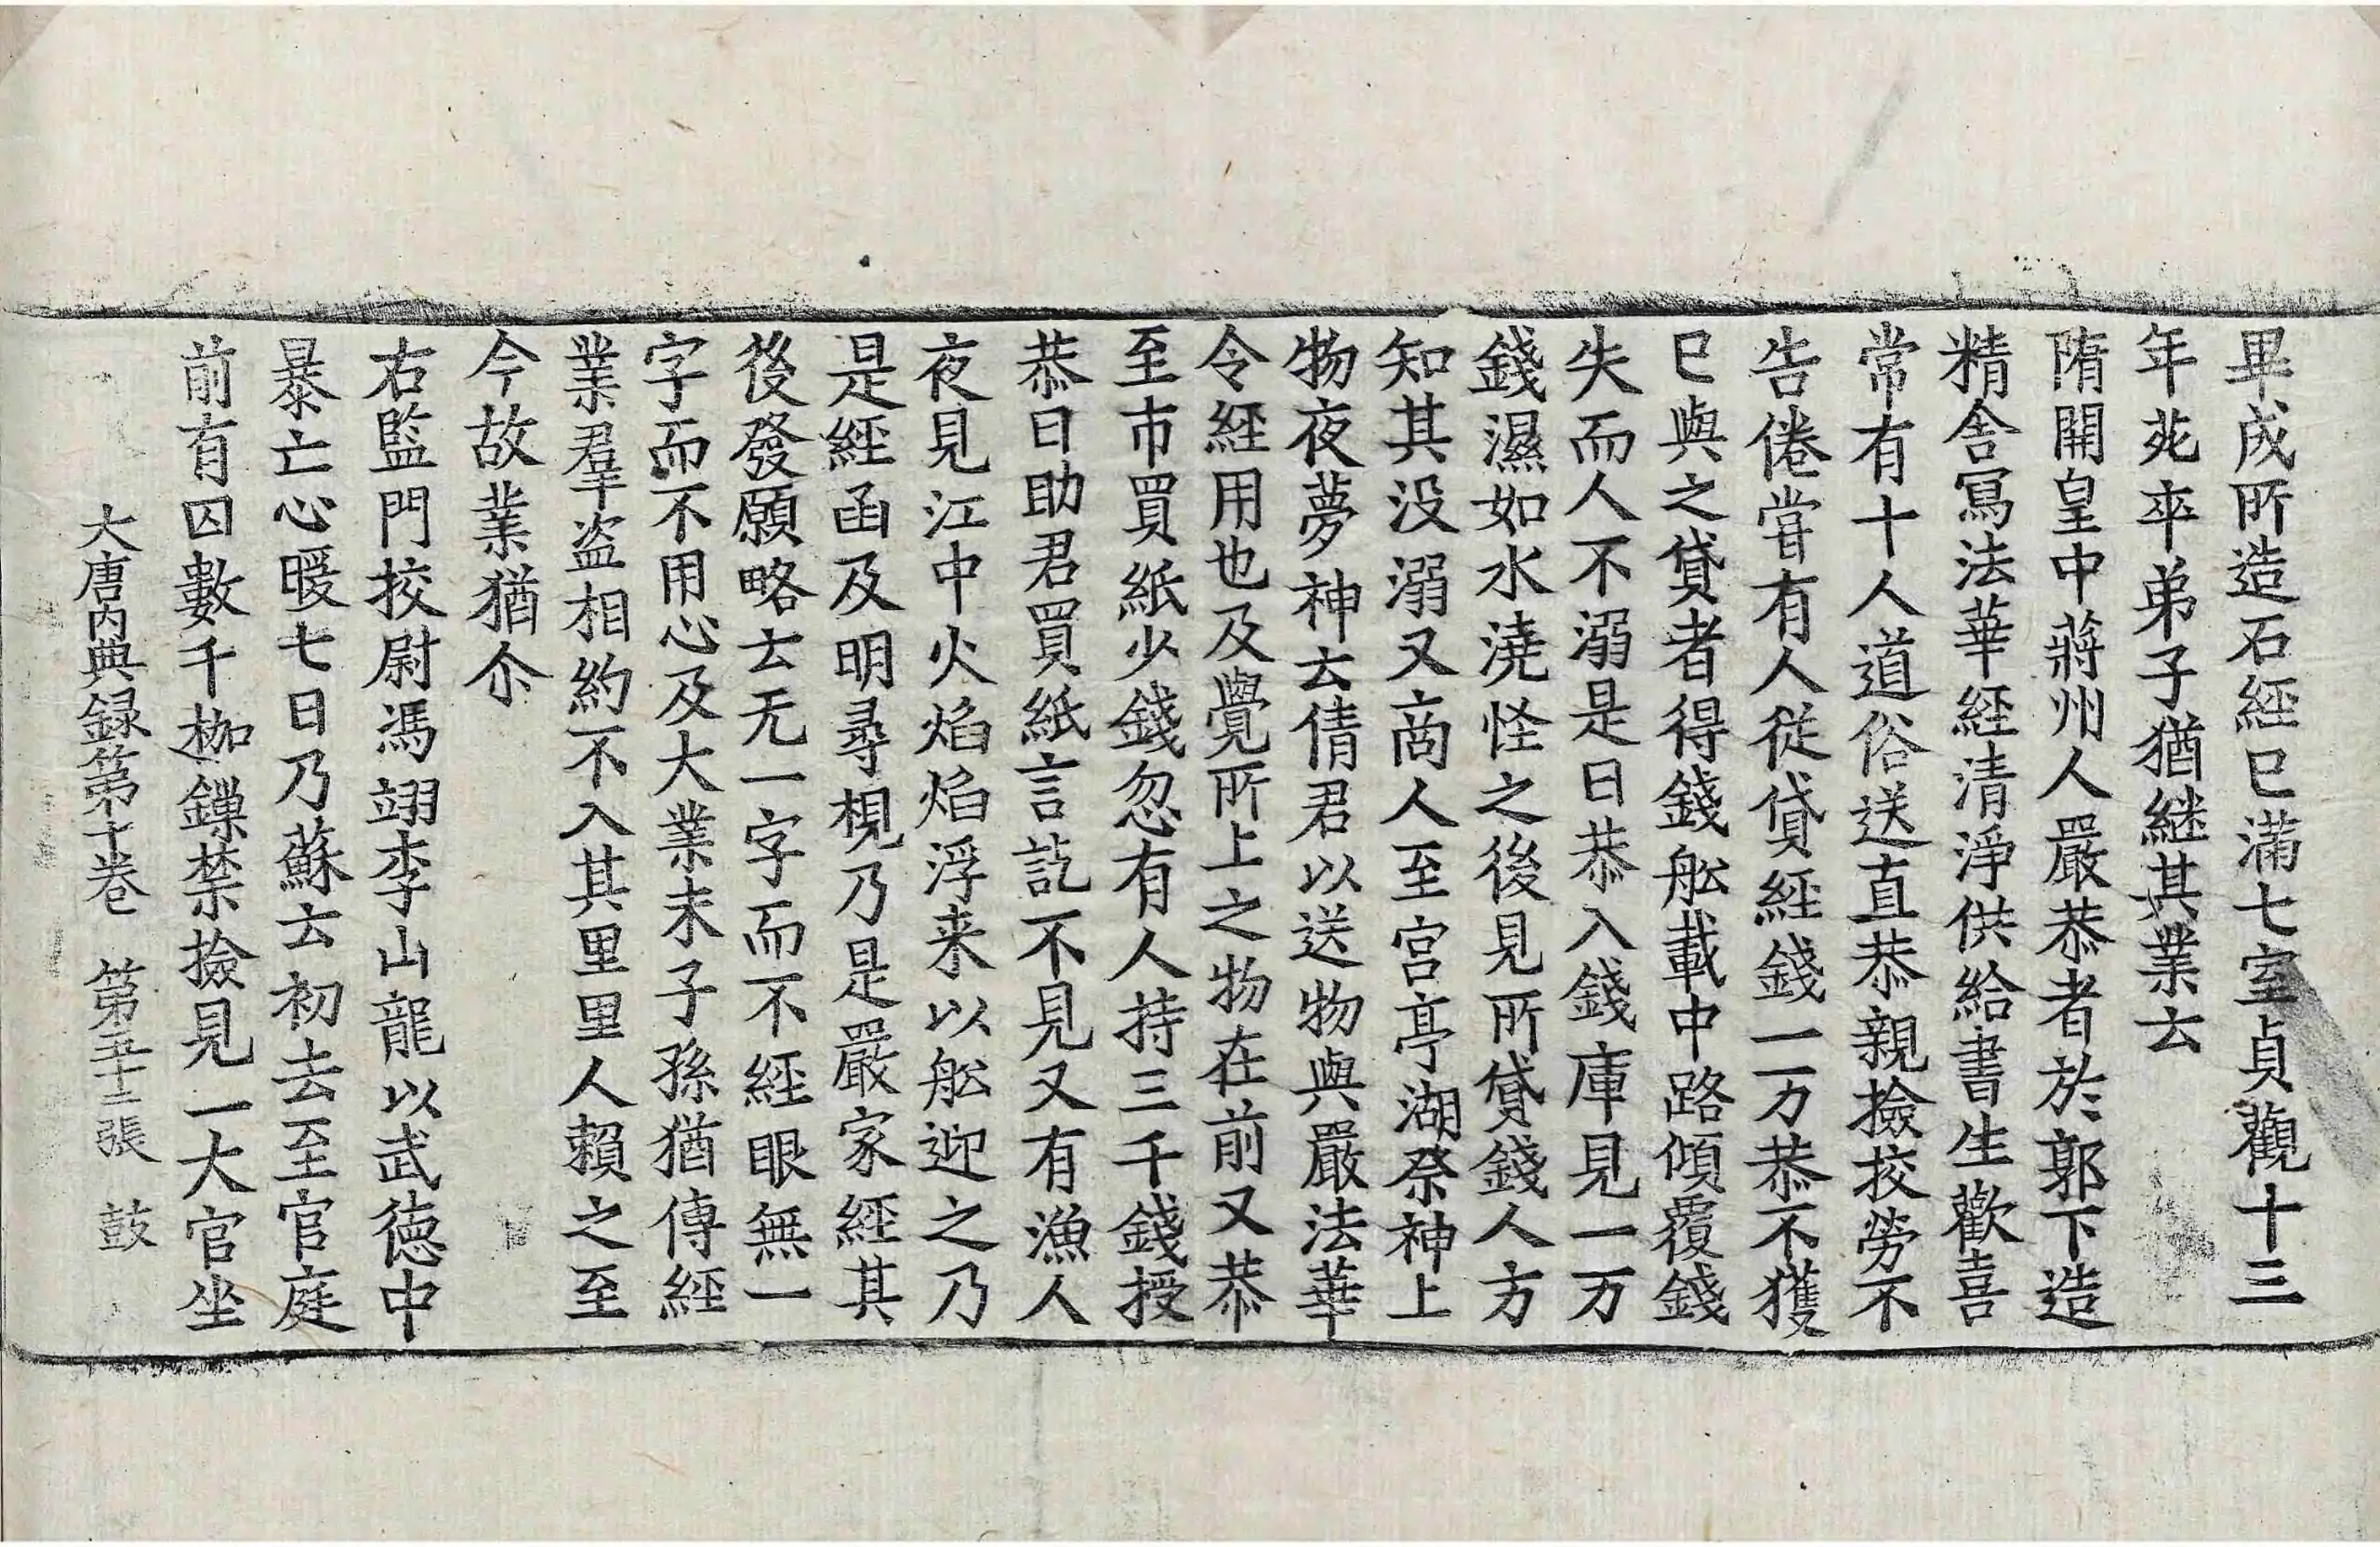 畢成所造石經已滿七室貞觀十三
年死卒弟子猶継其業云
隋開皇中蔣州人嚴恭者於郭下造
精舍寫法華經清淨供給書生歡喜
常有十人道俗送直恭親撿挍勞不
告倦甞有人從貸經錢一万恭不獲
已與之貸者得錢舩載中路傾覆錢
失而人不溺是日恭入錢庫見一万
錢濕如水澆怪之後見所貸錢人方
知其没溺又商人至宮亭湖祭神上
物夜夢神云倩君以送物與嚴法華
令經用也及覺所上之物在前又恭
至市買紙少錢忽有人持三千錢授
恭曰助君買紙言訖不見又有漁人
夜見江中火焰焰浮来以舩迎之乃
是經函及明尋梘乃是嚴家經其
後發願略云无一字而不經眼無一
字而不用心及大業末子孫猶傳經
業羣盗相約不入其里里人賴之至
今故業猶尒
右監門挍尉馮翊李山龍以武德中
暴亡心暖七日乃蘇云初去至官庭
前有囚數千枷鏁禁撿見一大官坐
大唐内典録第十卷　第五十二張　鼓